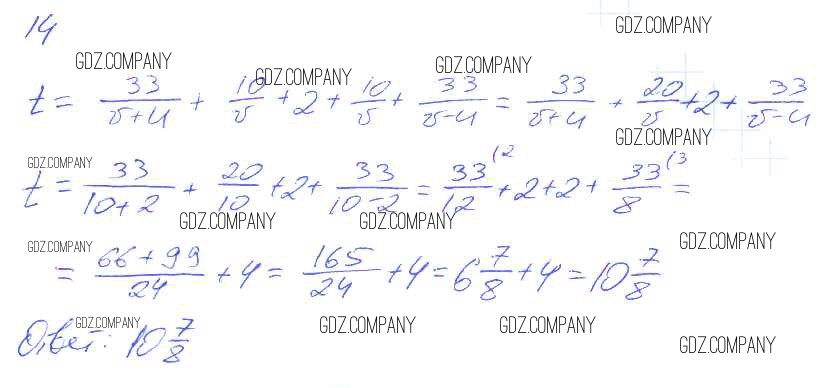 14
GDZ.COMPANY
GDZ.COMPANY GDZ.COMPANY GDZ.COMPANY
t = 33/(v+u) + 10/v + 2 + 10/v + 33/(v-u) = 33/(v+u) + 20/v + 2 + 33/(v-u)
GDZ.COMPANY
GDZ.COMPANY
t = 33/(10+2) + 20/10 + 2 + 33/(10-2) = 33(2/12 + 2 + 2 + 33(3/8 =
GDZ.COMPANY GDZ.COMPANY
GDZ.COMPANY GDZ.COMPANY
= (66+99)/24 + 4 = 165/24 + 4 = 6 7/8 + 4 = 10 7/8
GDZ.COMPANY GDZ.COMPANY GDZ.COMPANY
Ответ: 10 7/8
GDZ.COMPANY